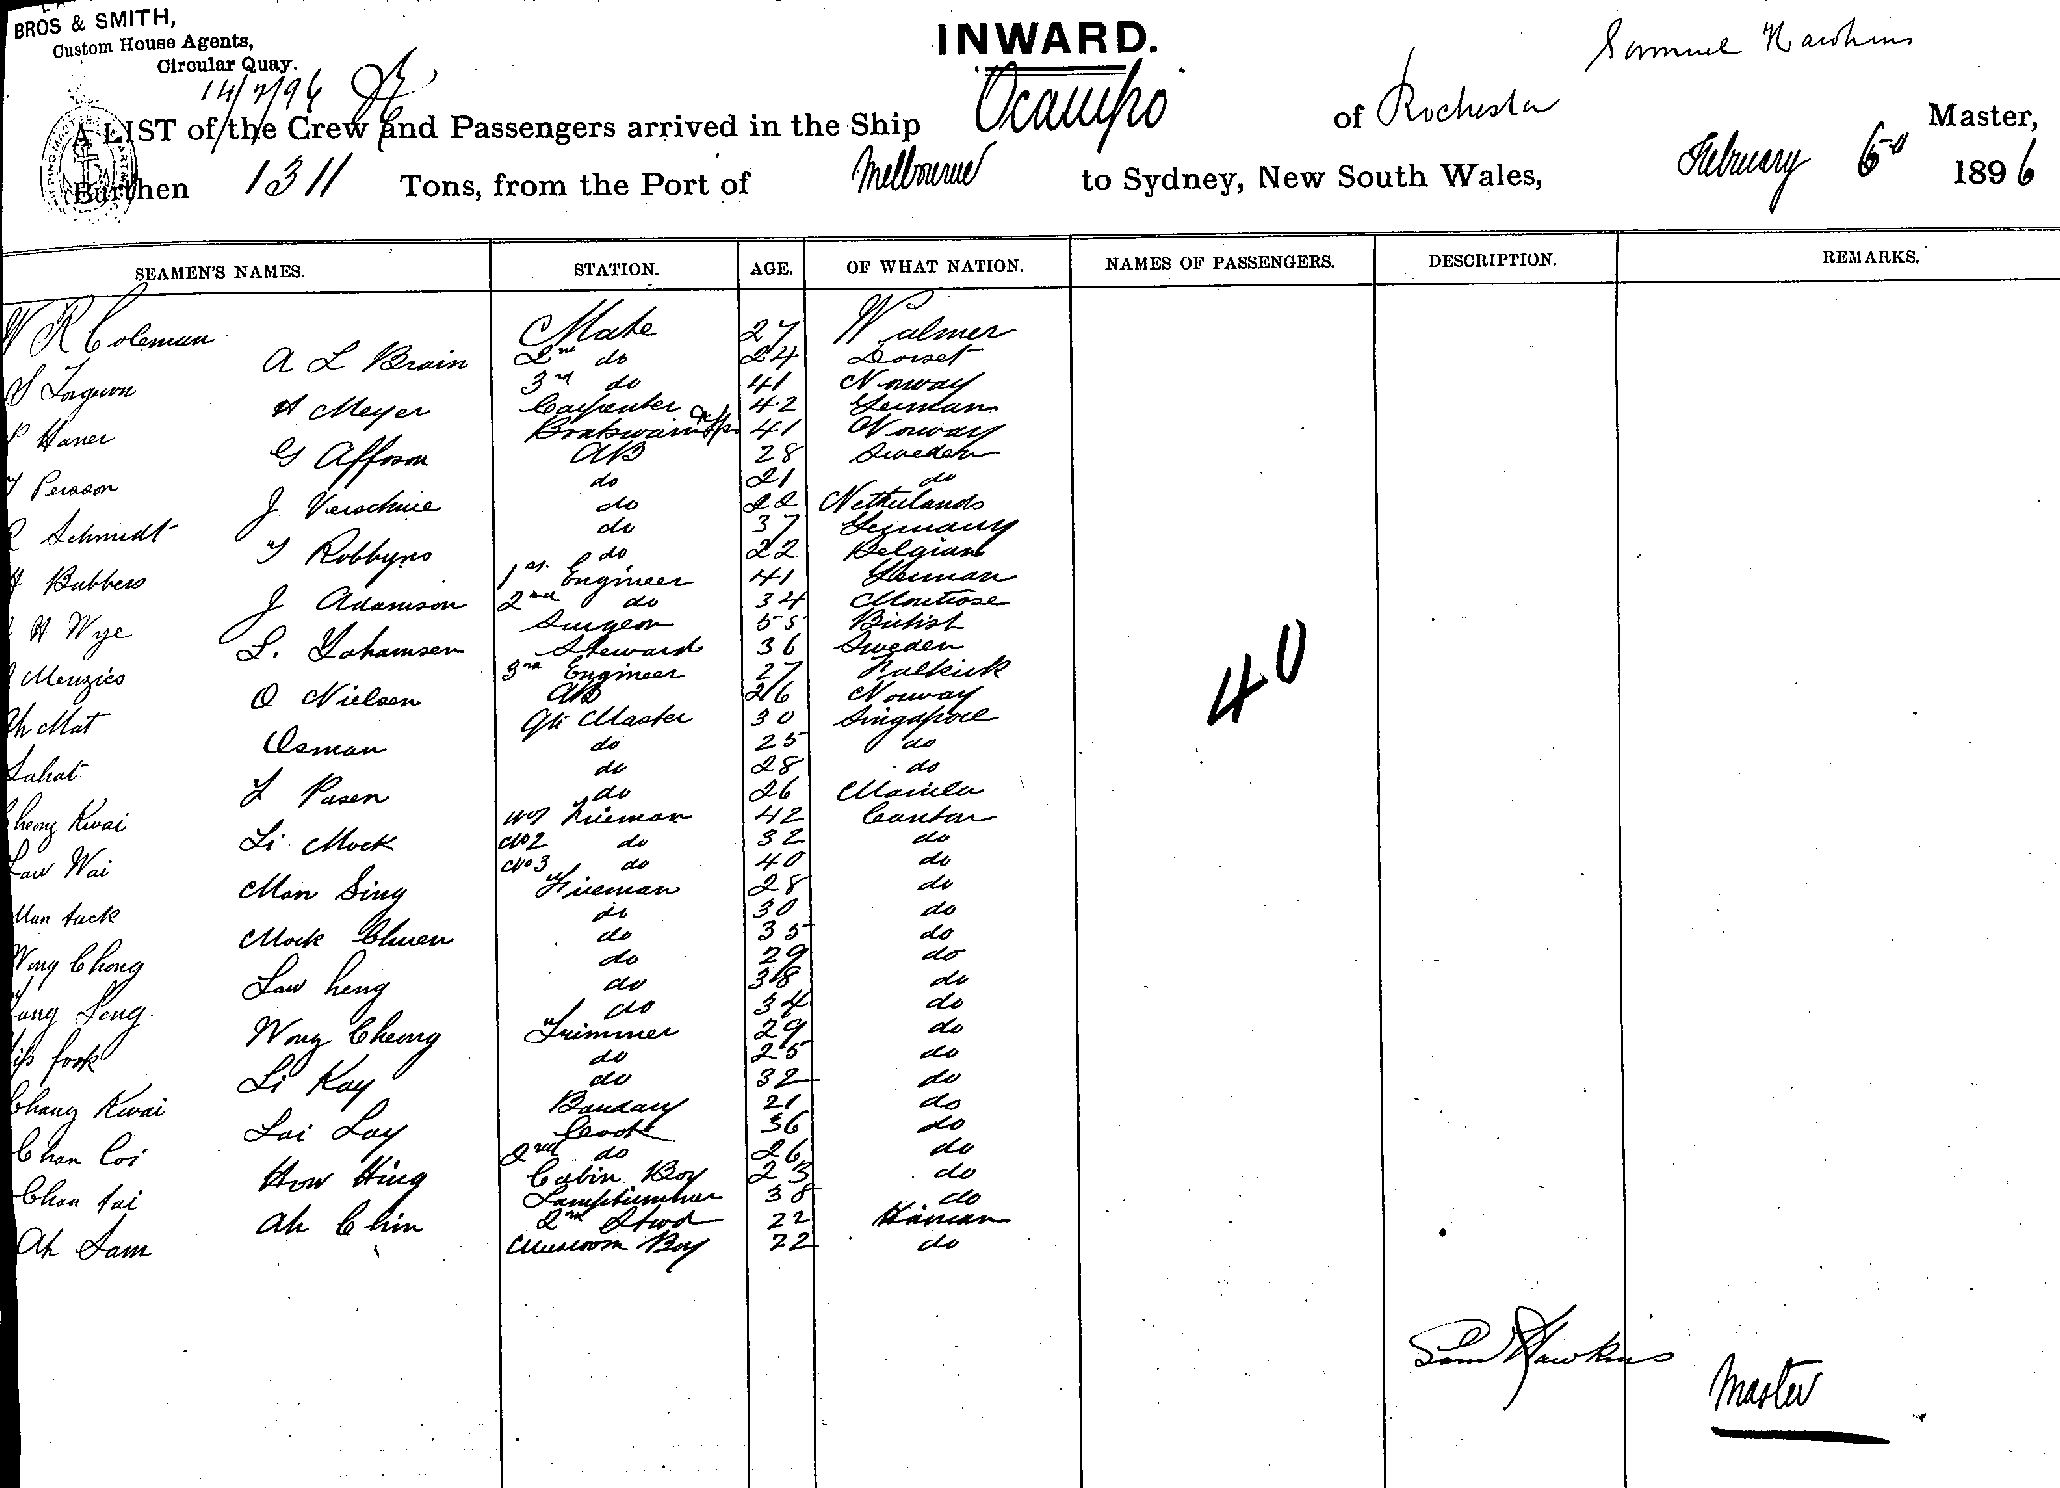 BROS & SMITH,
Custom House Agents,
Circular Quay.
14/2/96
INWARD.
Samuel Hawkins
A LIST of the Crew and Passengers arrived in the Ship Ocampo of Rochester Master,
Burthen 1311 Tons, from the Port of Melbourne to Sydney, New South Wales, February 6 1896
SEAMEN'S NAMES. STATION. AGE. OF WHAT NATION. NAMES OF PASSENGERS. DESCRIPTION. REMARKS.
W R Coleman Mate 27 Walmer
A L Brain 2nd do 24 Dorset
3rd do 41 Norway
H Meyer Carpenter 42 German
Haner 41 Norway
G Affoson AB 28 Sweden
Persson do 21 do
J Verschure do 22 Netherlands
Schmidt do 37 Germany
Robbyns do 22 Belgian
Bubbers 1st Engineer 41 German
J Adamson 2nd do 34 Montrose
H Wye Surgeon 55 British
L. Yohamsen Steward 36 Sweden
Menzies 3rd Engineer 27 Falkirk
O Nielsen AB 26 Norway
Ah Mat Qtr Master 30 Singapore
Osman do 25 do
Sahat do 28 do
Pasen do 26 Manila
Cheong Kwai No 1 Fireman 42 Canton
Li Mock No 2 do 32 do
Law Wai No 3 do 40 do
Mon Sing Fireman 28 do
Man tack do 30 do
Mock Chuen do 35 do
Wong Chong do 29 do
Law heng do 38 do
Song do 34 do
Wong Cheong Trimmer 29 do
fook do 25 do
Li Kay do 32 do
Chang Kwai 21 do
Lai Loy Cook 36 do
Chan Coi 2nd do 26 do
How Hing Cabin Boy 23 do
Chan tai Lamptrimmer 38 do
Ah Chin 2nd Stwd 22 Hainan
Ah Sam Messroom Boy 22 do
40
Saml Hawkins
Master